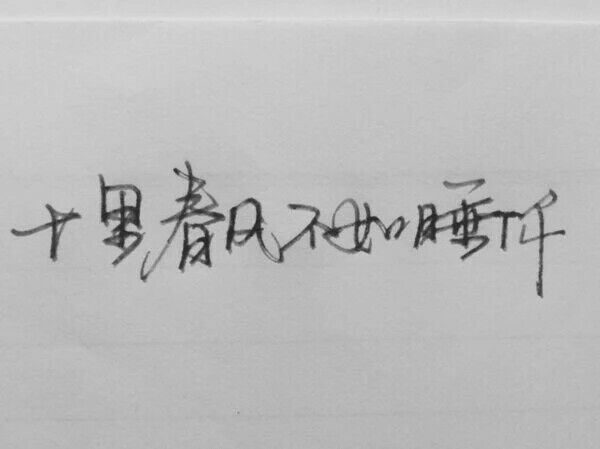 十里春风不如睡